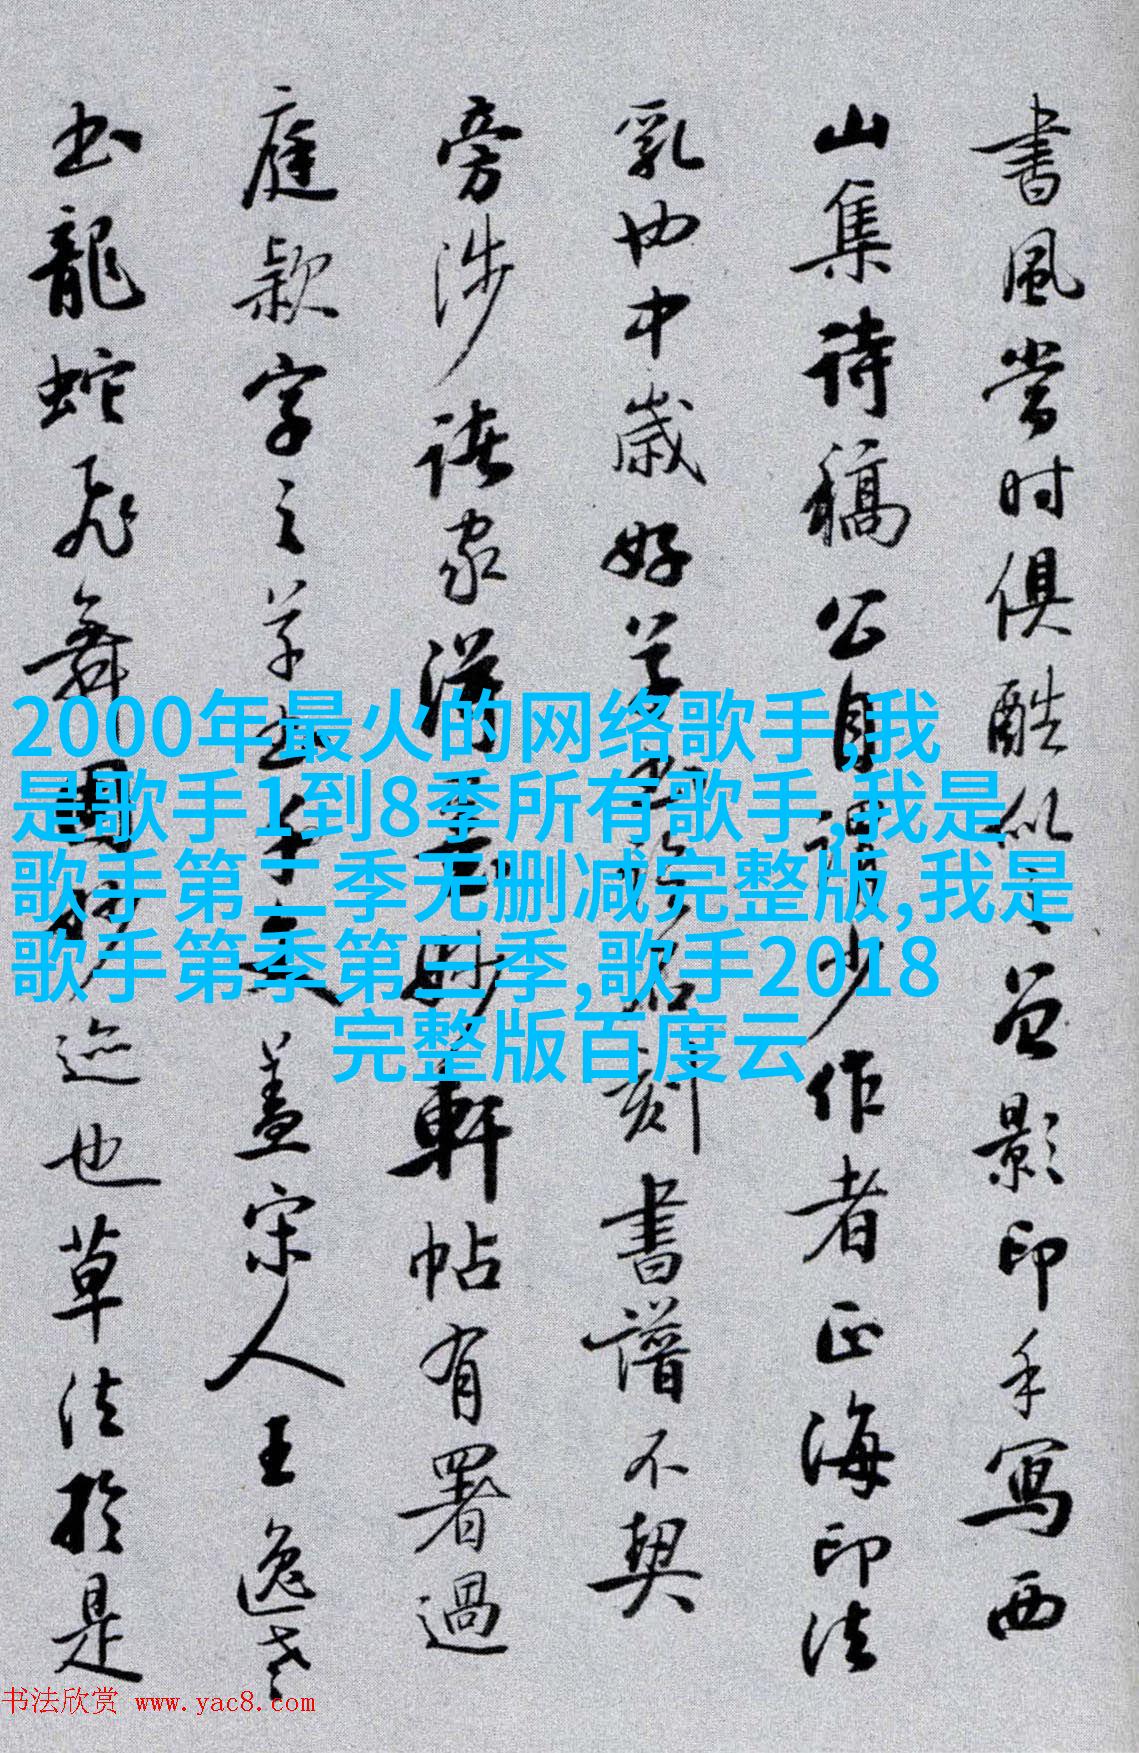 書風當时俱酷似之曾影印手寫西
山集诗稿公自謂少作者正海印法
乳也中歲好
刻書譜不契
旁涉諸家漢
軒帖有署過
庭款字之草书千文蓋宋人王逸老
书龍蛇飛舞
迹也草法於是
2000年最火的网络歌手,我
是歌手1到8季所有歌手,我是
歌手第二季无删减完整版,我是
歌手第季第三季,歌手2018
完整版百度云
书法欣赏 www.yac8.com